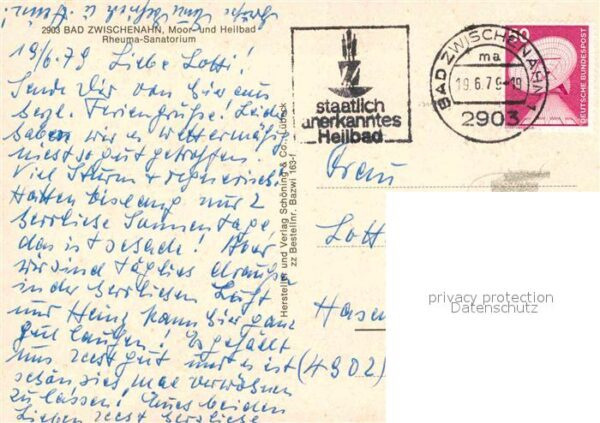 Grüße
2903 BAD ZWISCHENAHN, Moor- und Heilbad
Rheuma-Sanatorium
19/6.79 Liebe Lotti!
Sende Dir von hier aus
herzl. Feriengrüße! Leider
haben wir es wettermäßig
nicht so gut getroffen.
Viel Sturm + regnerisch.
Hatten bislang nur 2
herrliche Sonnentage,
das ist schade! Aber
wir sind täglich draußen
in der herrlichen Luft
und Heinz kann hier ganz
gut laufen! Es gefällt
uns recht gut und es ist
schön, sich mal verwöhnen
zu lassen! Euch beiden
Lieben recht herzliche
Hersteller und Verlag Schöning & Co., Lübeck
zz Bestellnr. Bazwi 163-f
staatlich
anerkanntes
Heilbad
BAD ZWISCHENAHN 1
ma
19.6.79-19
2903
DEUTSCHE BUNDESPOST
Frau
Lott
Hasen
(4902)
privacy protection
Datenschutz